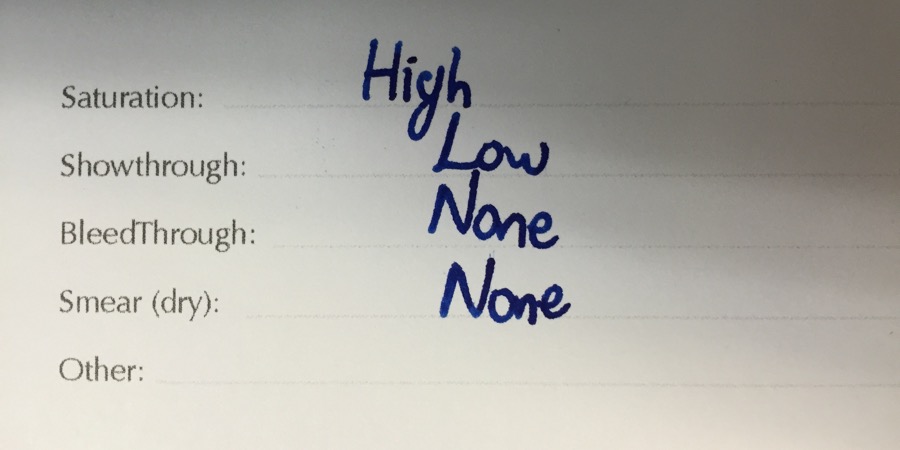 Saturation: High
Showthrough: Low
BleedThrough: None
Smear (dry): None
Other: